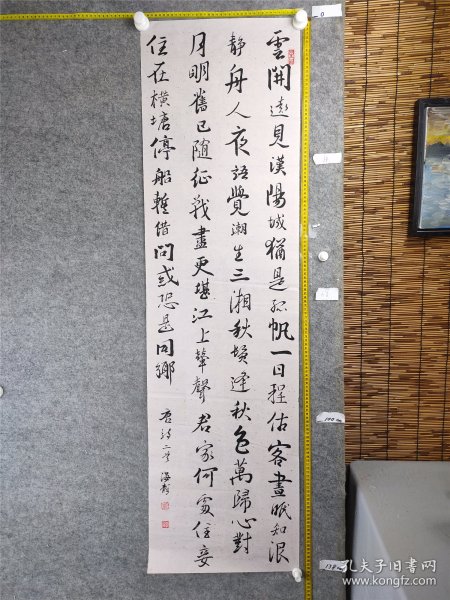 雲開遠見漢陽城猶是孤帆一日程估客晝眠知浪
静舟人夜語覺潮生三湘秋鬢逢秋色萬歸心對
月明舊已隨征戰盡更堪江上鼙聲君家何處住妾
住在橫塘停船暫借問或恐是同鄉
唐詩二首 海
0
孔夫子旧书网